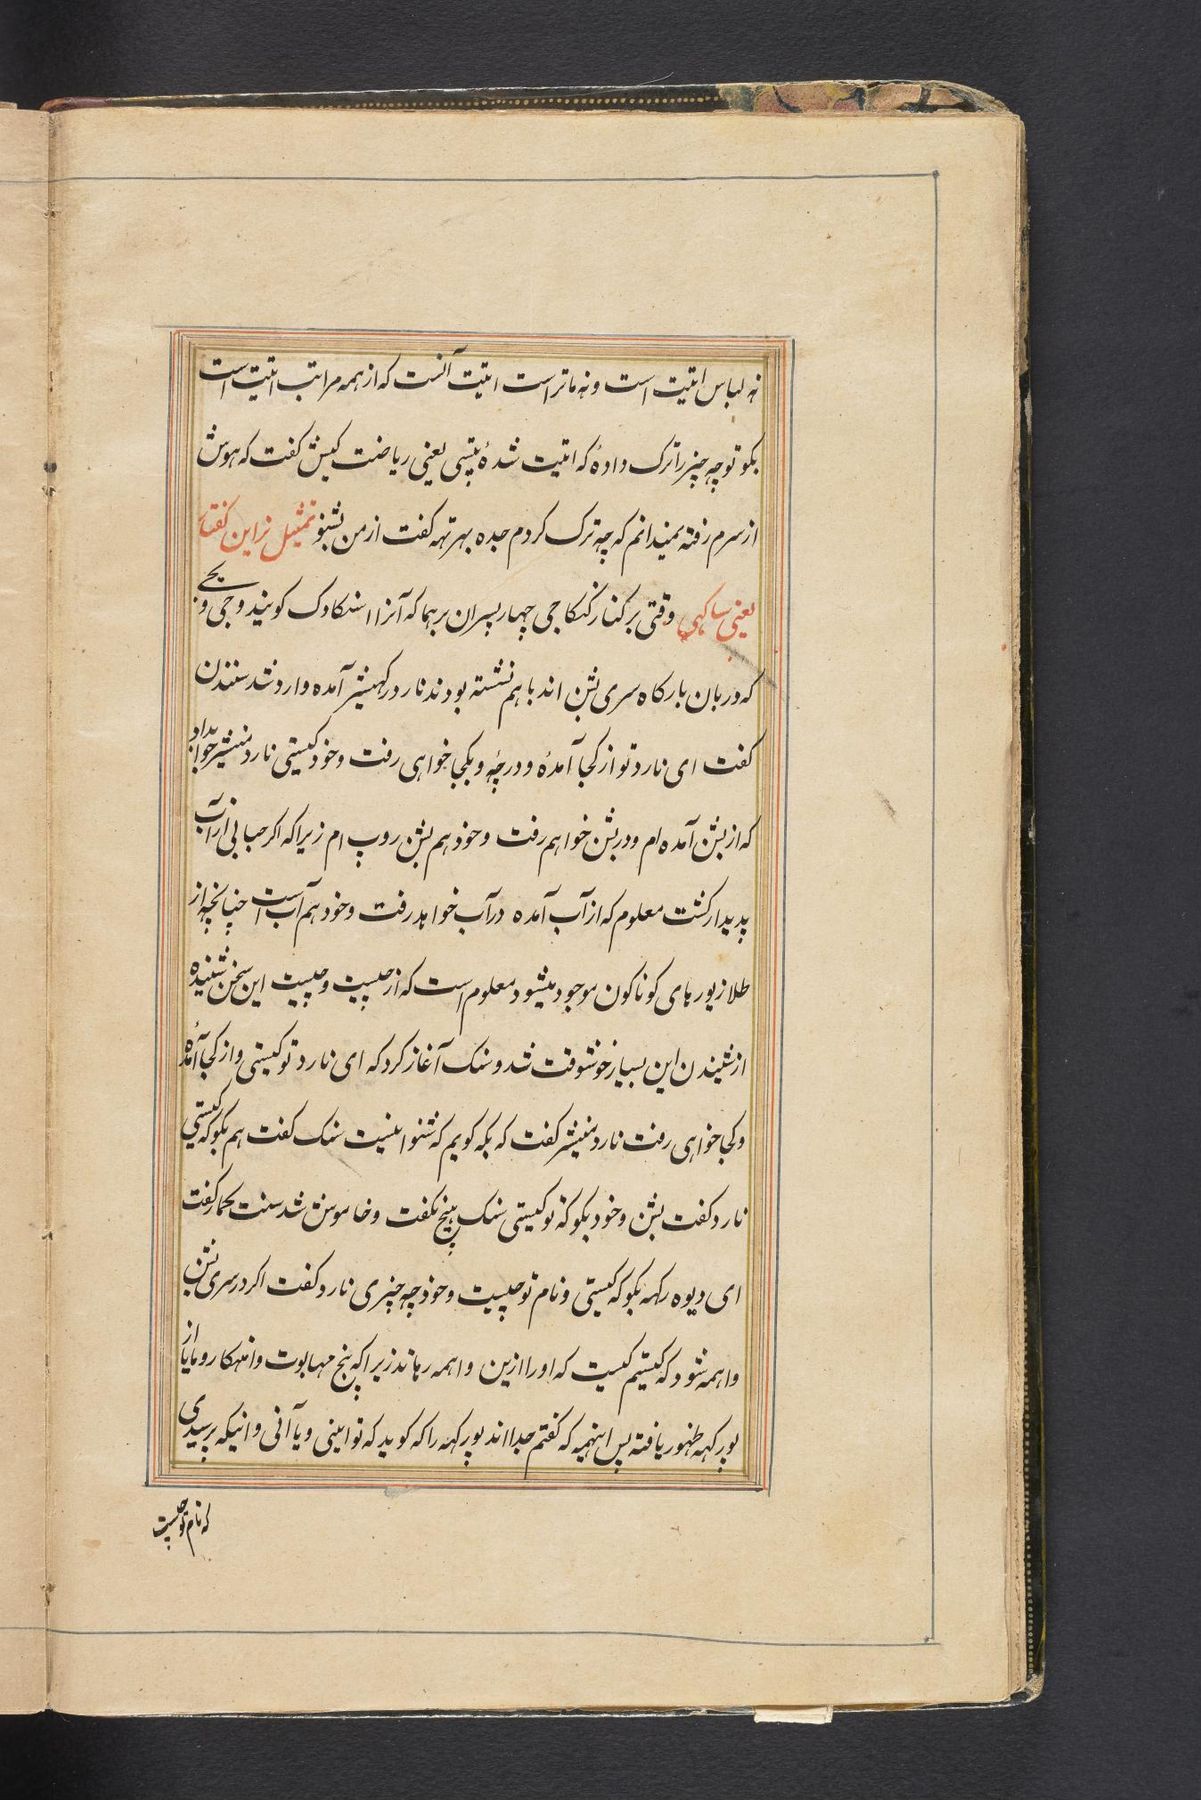 نه لباس اتیت است و نه ماتراست اتیت آنست که از همه مراتب اتیت است
بکو تو چه چیز را ترک دادهٔ که اتیت شدهٔ تپسی یعنی ریاضت کیش کفت که هوش
از سرم رفته نمیدانم که چه ترک کردم جده بهرتهه کفت از من بشنو تمثیل نراین کفتار
یعنی ساکهی وقتی بر کنار کنکا جی چهار پسران برهما که آنرا سنکادک کویند و جی و بجی
که دربان بارکاه سری بشن اند باهم نشسته بودند نارد رکهیشر آمده وارد شد سنندن
کفت ای نارد تو از کجا آمدهٔ و در چهٔ و بکجا خواهی رفت و خود کیستی نارد منیشر جواب داد
که از بشن آمده ام و در بشن خواهم رفت و خود هم بشن روپ ام زیرا که اکر حبابی از آب
پدیدار کشت معلوم که از آب آمده در آب خواهد رفت و خود هم آب است چنانچه از
طلا زیورهای کوناکون موجود میشود معلوم است که از چیست و چیست این سخن شنیده
از شنیدن این بسیار خوشوقت شد و سنک آغاز کرد که ای نارد تو کیستی و از کجا آمدهٔ
و کجا خواهی رفت نارد منیشر کفت که بکه کویم که شنوا نیست سنک کفت هم بکو که کیستی
نارد کفت بشن و خود بکو که تو کیستی سنک هیچ نکفت و خاموش شد سنت کمار کفت
ای دیوه رکهه بکو که کیستی و نام تو چیست و خود چه چیزی نارد کفت اکر در سری بشن
واهمه شود که کیستم کیست که او را ازین واهمه رهاند زیرا که پنج مهابوت و انهکار و مایا از
پورکهه ظهور یافته پس اینهمه که کفتم جدا اند پورکهه را که کوید که تو اینی و یا آنی و انیکه پرسیدی
که نام تو چیست